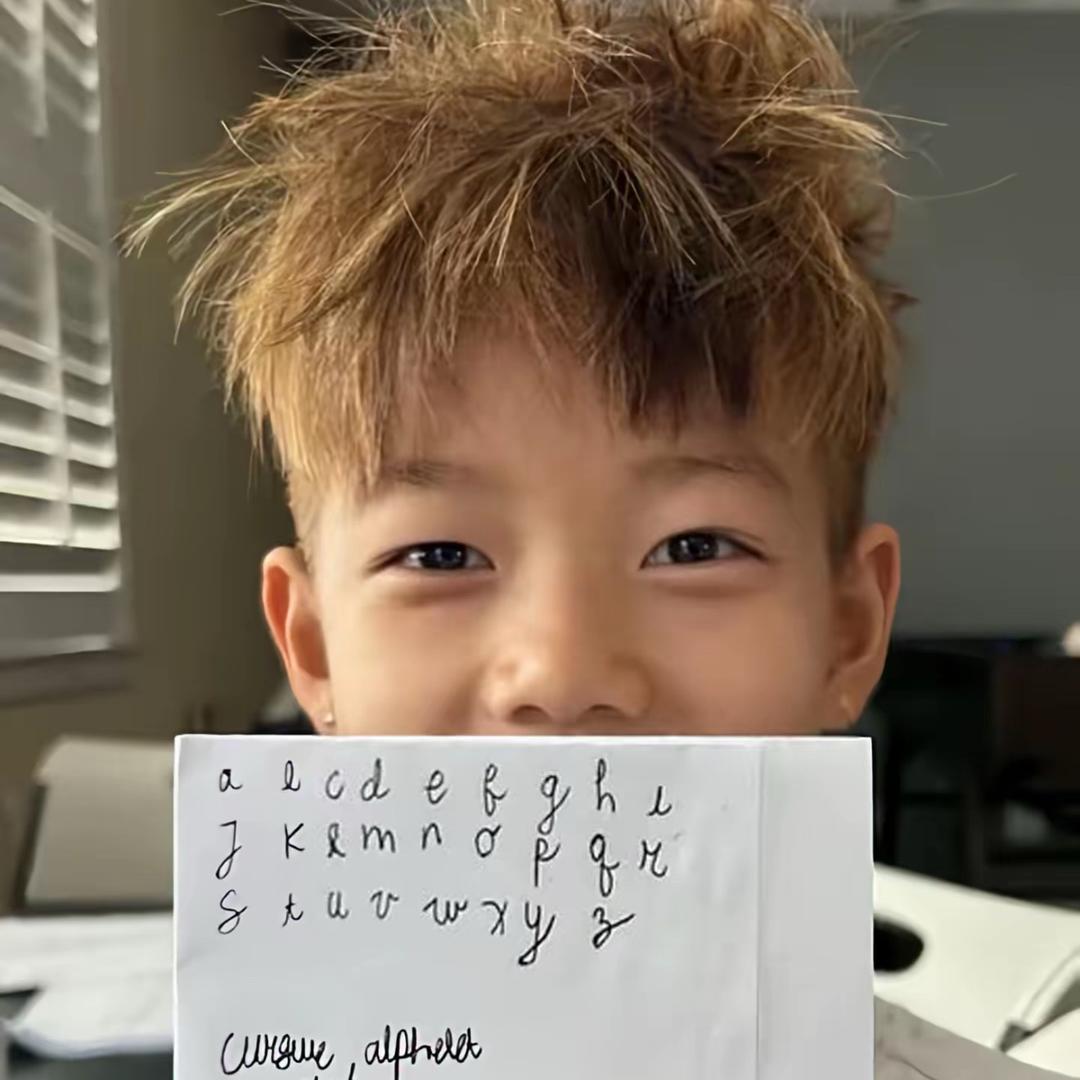 a b c d e f g h i
J K l m n o p q r
S t u v w x y z
cursive, alphabet